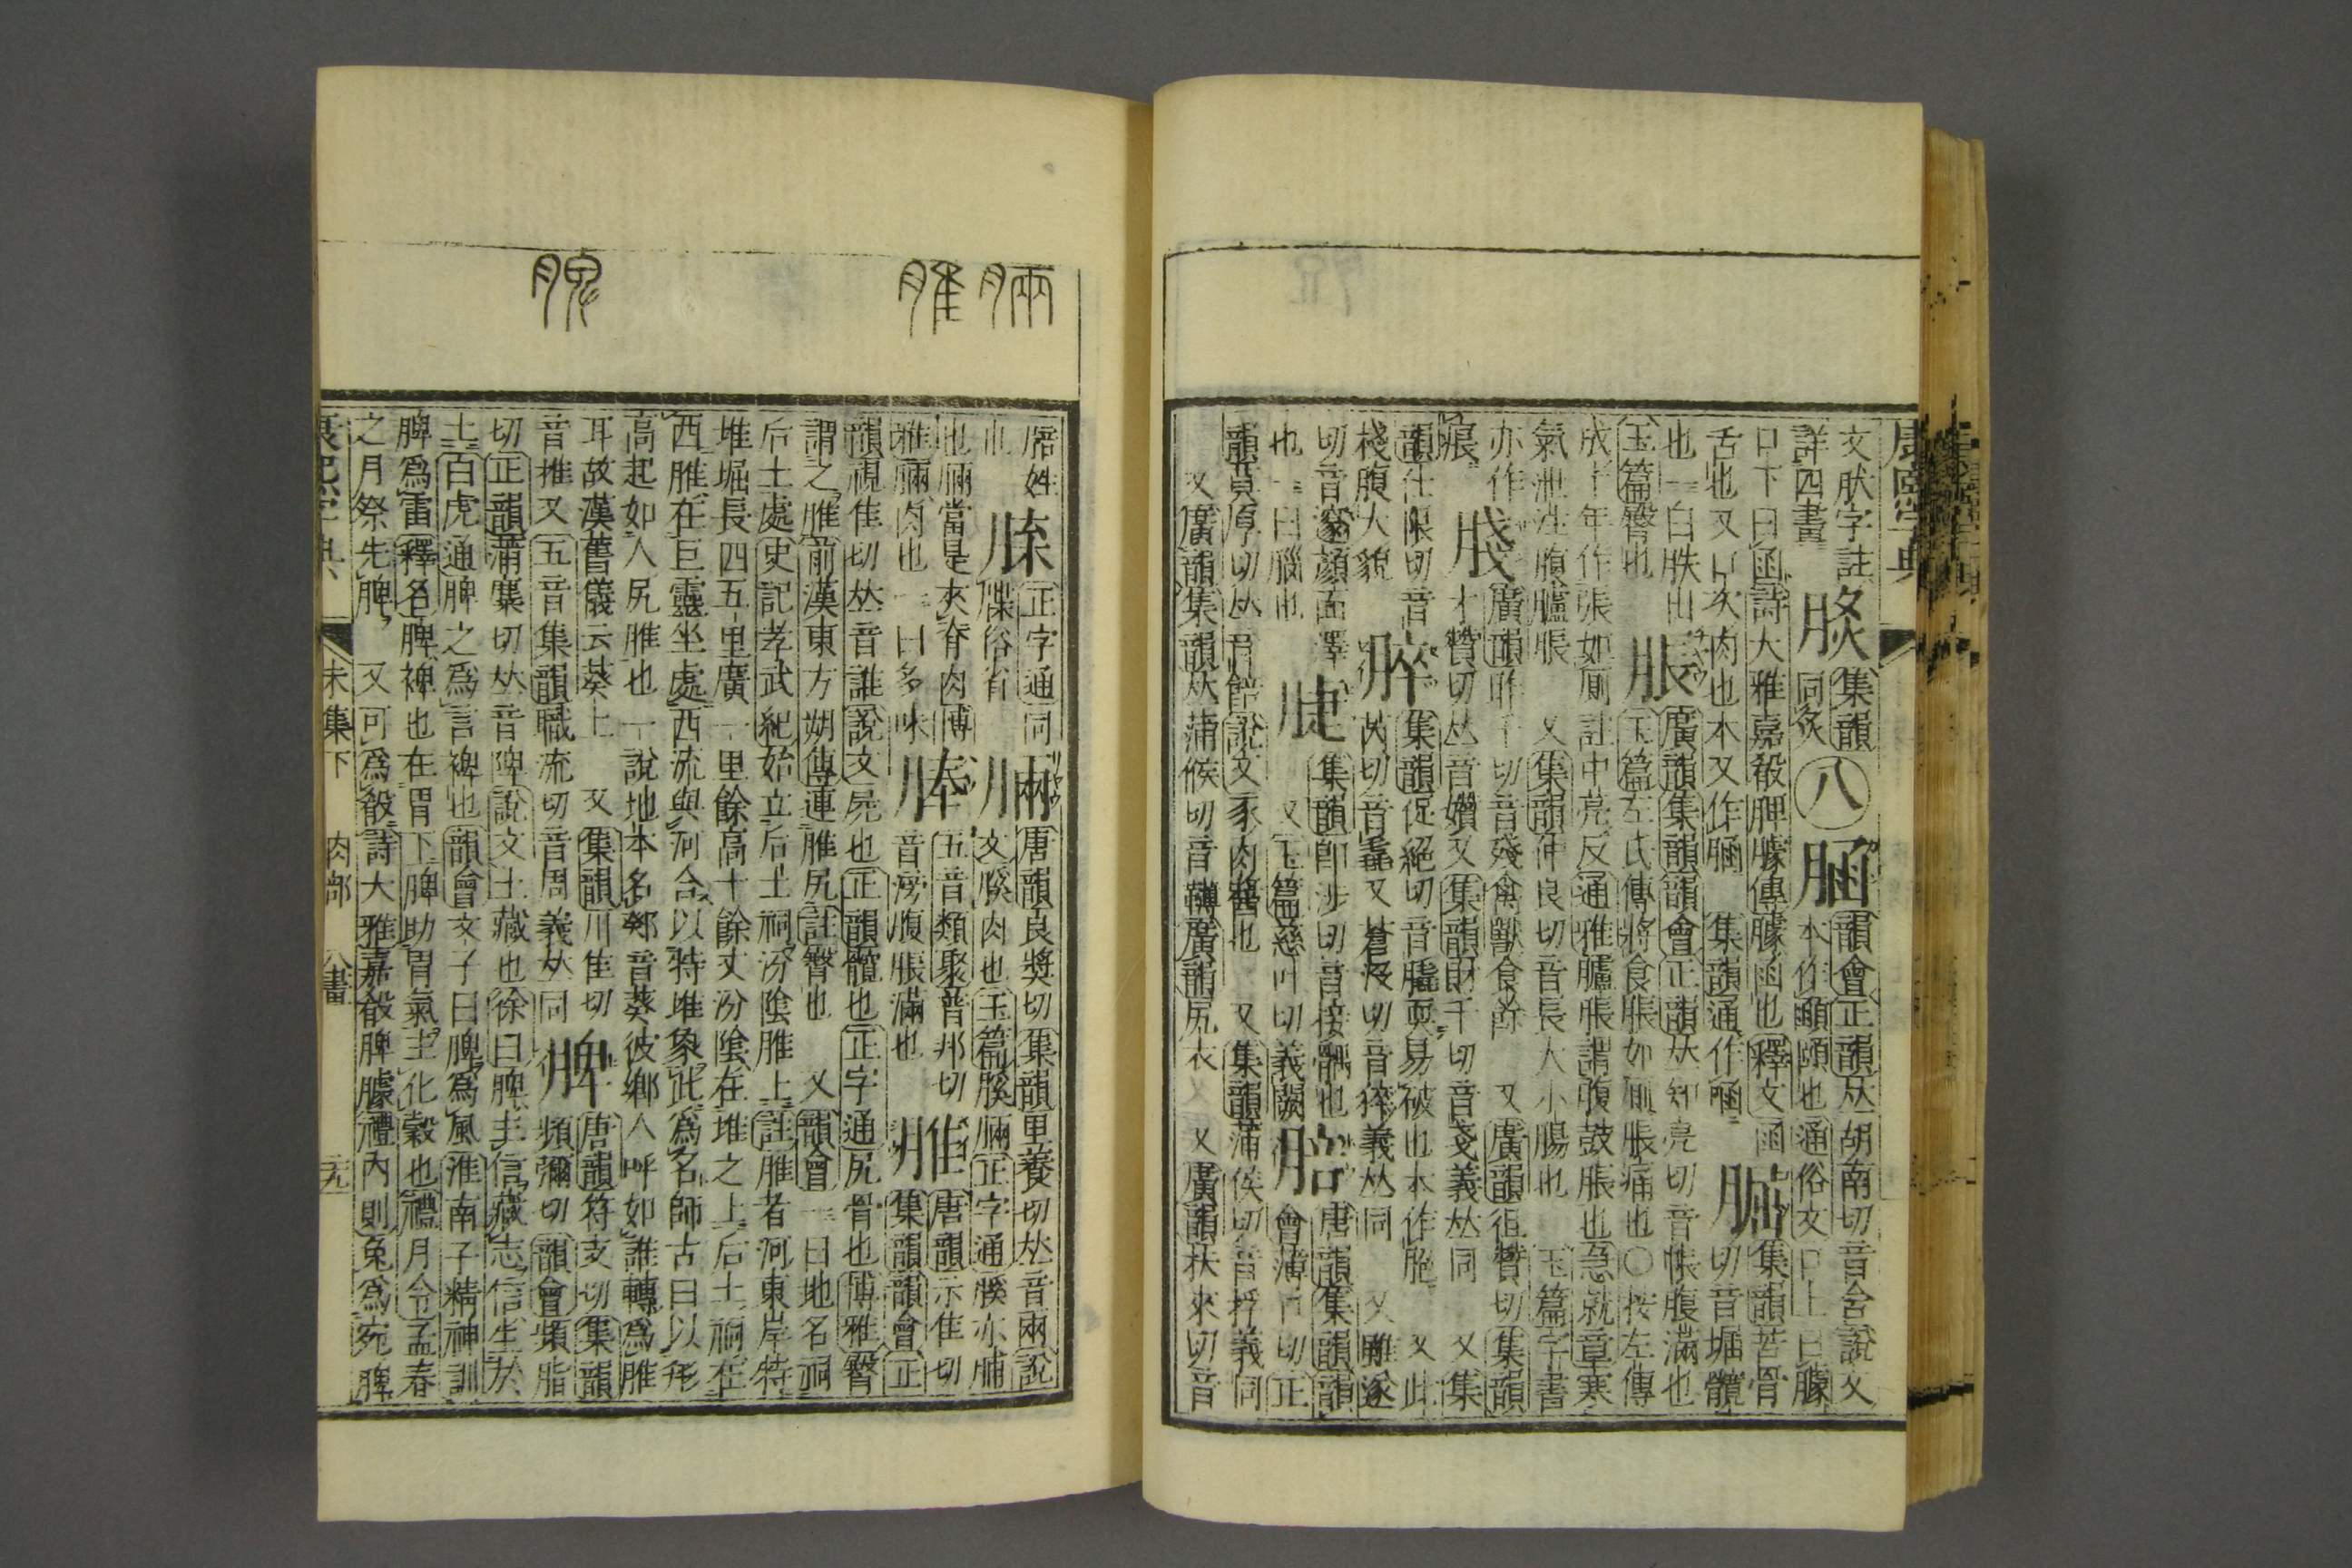 康熙字典
文肰字註 集韻 韻會正韻𠀤胡南切音含說文
詳四畫 同炙 八 本作顄頤也通俗文口上曰臄
口下曰函詩大雅嘉殽脾臄傳臄函也釋文函 集韻苦骨
舌也又口次肉也本又作䐄 集韻通作䐄 切音堀髖
也一曰胅出 脹 廣韻集韻韻會正韻𠀤知亮切音帳腹滿也
玉篇臀也 玉篇左氏傳將食脹如厠脹痛也〇按左傳
成十年作張如厠 註中亮反通雅臚脹謂腹鼓脹也急就章寒
氣泄注腹臚脹 又集韻仲良切音長大小腸也 玉篇字書
亦作痮 廣韻昨干切音殘禽獸食餘 又廣韻徂贊切集韻
才贊切𠀤音㜺又集韻財千切音戔義𠀤同 又集
韻仕限切音 脺 集韻促絕切音膬耎易破也本作脃 又此
棧腹大貌 芮切音毳又蒼没切音猝義𠀤同 又雖遂
切音邃顏面澤 㨗 集韻卽涉切音接 唐韻集韻韻
也一曰腦也 又玉篇慈叶切義闕 會薄口切正
韻莫厚切𠀤音䭌說文豕肉醬也 又集韻蒲侯切音抙義同
又廣韻集韻𠀤蒲候切音 廣韻尻衣 又廣韻扶來切音
脼 脽 脾
𨹂姓 正字通同 脼 唐韻良獎切集韻里養切𠀤音兩說
也 䐑俗省 文膎肉也玉篇膎脼正字通膎亦脯
也脼當是夾脊肉博 五音類聚普邦切 脽 唐韻示隹切
雅脼肉也一曰多味 音滂腹脹滿也 集韻韻會正
韻視隹切𠀤音誰說文𡱂也正韻髖也正字通尻骨也博雅臀
謂之脽前漢東方朔傳連脽尻註臀也 又韻會一曰地名祠
后土處史記孝武紀始立后土祠汾陰脽上註脽者河東岸特
堆堀長四五里廣一里餘高十餘丈汾陰在堆之上后土祠在
西脽在巨靈坐處西流與河合以特堆象此爲名師古曰以形
高起如人尻脽也一說地本名鄈音葵彼鄉人呼如誰轉爲脽
耳故漢舊儀云葵上 又集韻川隹切 脾 唐韻符支切集韻
音推又五音集韻職流切音周義𠀤同 頻彌切韻會頻脂
切正韻蒲麋切𠀤音陴說文土藏也徐曰脾主信藏志信生於
土白虎通脾之爲言裨也韻會文子曰脾爲風淮南子精神訓
脾爲雷釋名脾裨也在胃下脾助胃氣主化穀也禮月令孟春
之月祭先脾 又可爲殽詩大雅嘉殽脾臄禮內則兔爲宛脾
康熙字典 未集下 肉部 八畫 二九